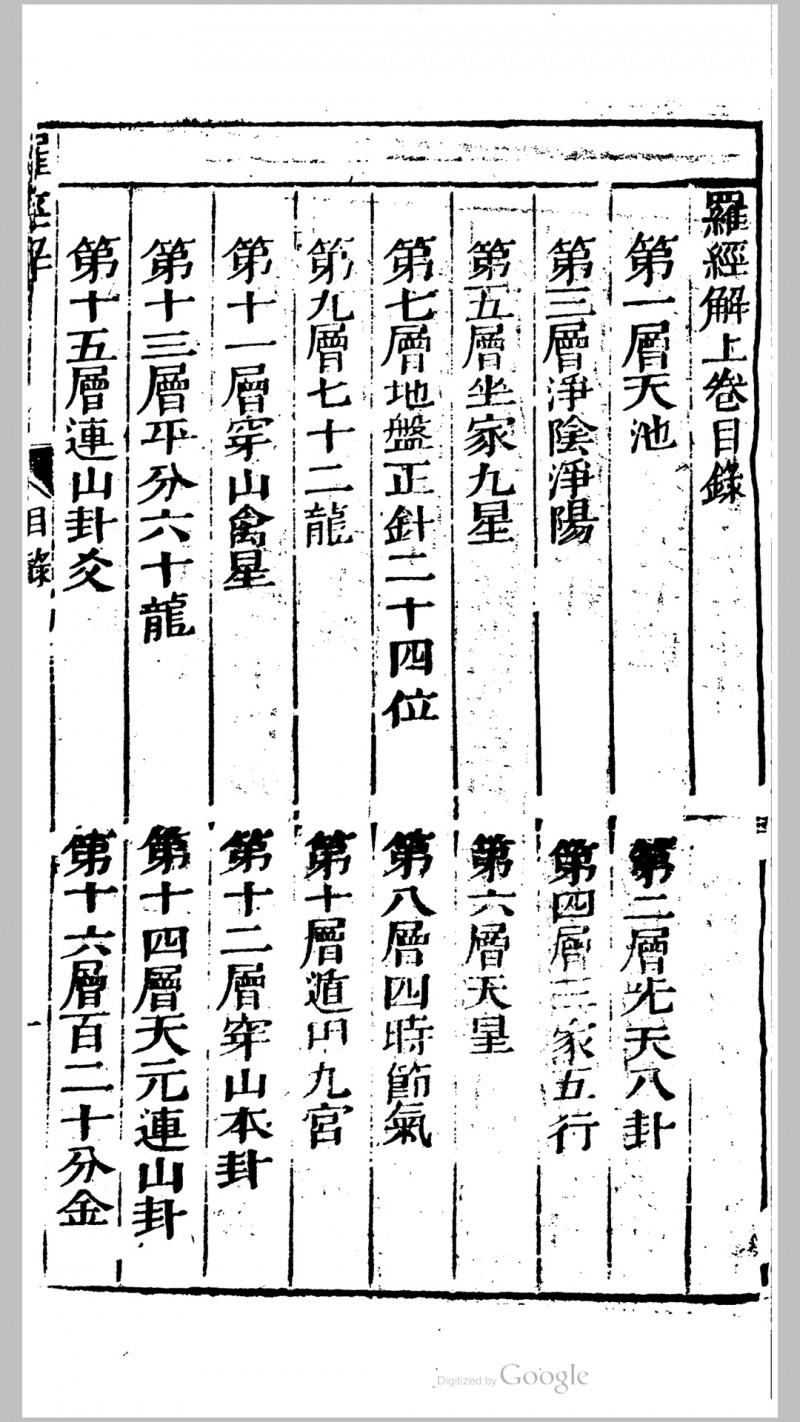 羅經解上卷目錄
第一層天池
第二層先天八卦
第三層淨陰淨陽
第四層三家五行
第五層坐家九星
第六層天星
第七層地盤正針二十四位
第八層四時節氣
第九層七十二龍
第十層遁甲九宮
第十一層穿山禽星
第十二層穿山本卦
第十三層平分六十龍
第十四層天元連山卦
第十五層連山卦爻
第十六層百二十分金
羅經解
目錄
一
Digitized by Google